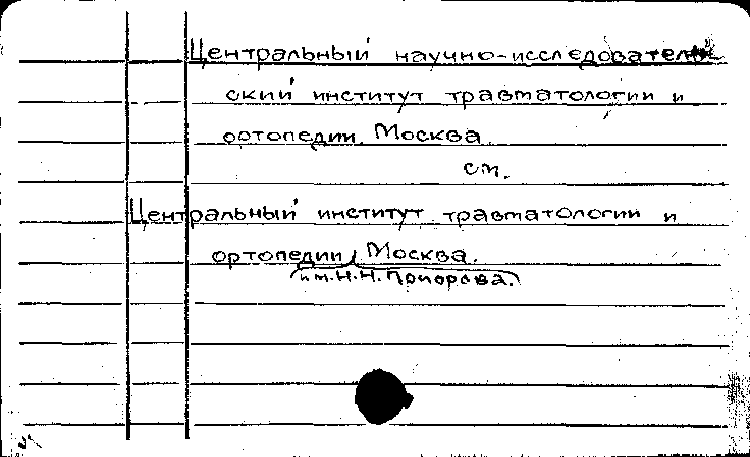 Центральный научно-исследователь
ский институт травматологии и
ортопедии. Москва
см.
Центральный институт травматологии и
ортопедии, Москва.
им. Н.Н. Приорова.